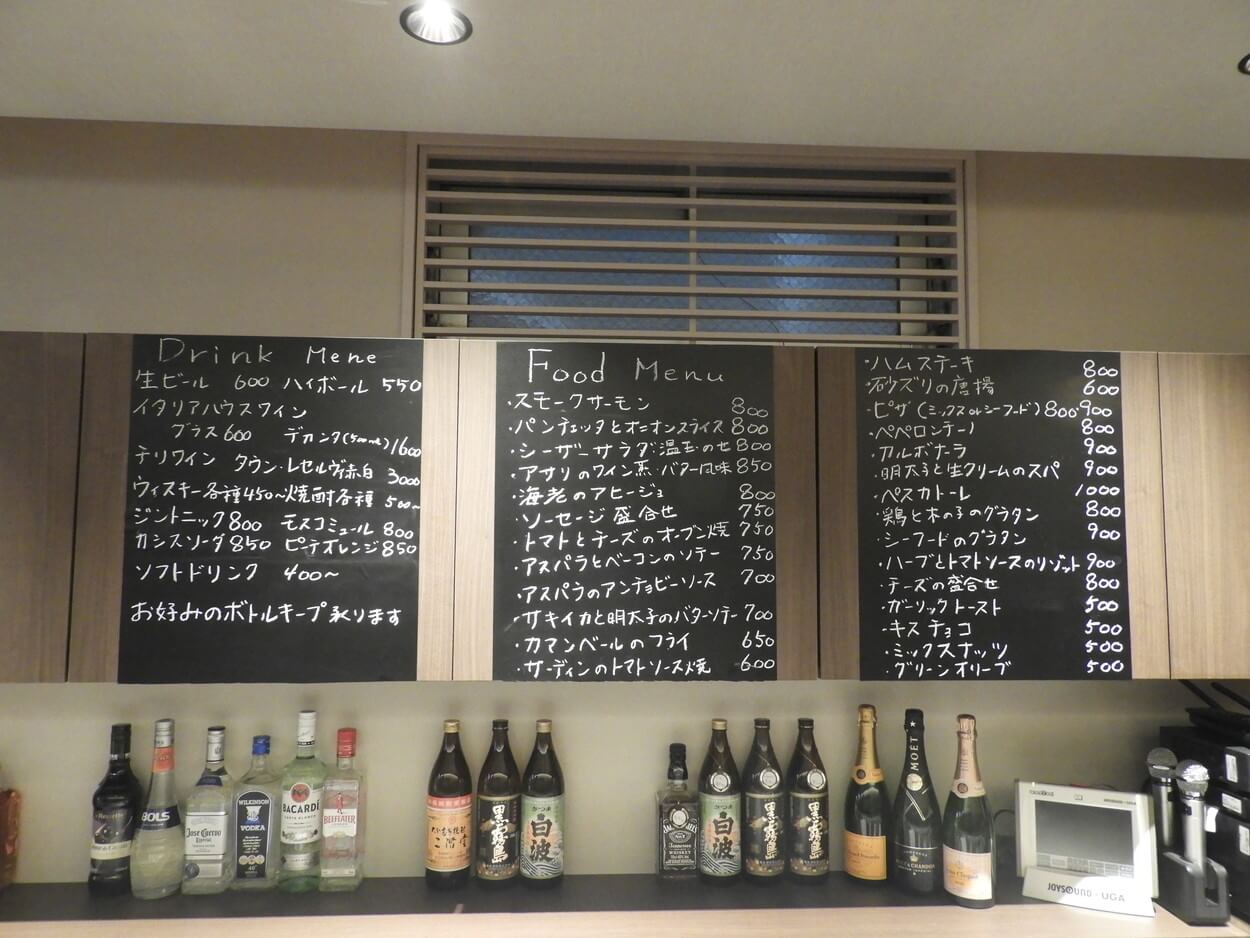 Drink Mene
生ビール 600 ハイボール 550
イタリアハウスワイン
グラス600 デカンタ(500ml)1600
テリワイン タウン・レセルヴァ赤白 3000
ウィスキー各種450~焼酎各種 500~
ジントニック800 モスコミュール 800
カシスソーダ850 ピーチオレンジ850
ソフトドリンク 400~
お好みのボトルキープ承ります
Food Menu
・スモークサーモン 800
・パンチェッタとオニオンスライス 800
・シーザーサラダ 温玉のせ 800
・アサリのワイン蒸・バター風味 850
・海老のアヒージョ 800
・ソーセージ盛合せ 750
・トマトとチーズのオーブン焼 750
・アスパラとベーコンのソテー 750
・アスパラのアンチョビーソース 700
・サキイカと明太子のバターソテー 700
・カマンベールのフライ 650
・サーディンのトマトソース焼 600
・ハムステーキ 800
・砂ズリの唐揚 600
・ピザ(ミックスorシーフード)800・900
・ペペロンチーノ 800
・カルボナーラ 900
・明太子と生クリームのスパ 900
・ペスカトーレ 1000
・鶏と木の子のグラタン 800
・シーフードのグラタン 900
・ハーブとトマトソースのリゾット 900
・チーズの盛合せ 800
・ガーリックトースト 500
・キスチョコ 500
・ミックスナッツ 500
・グリーンオリーブ 500
BOLS
Jose Cuervo
Especial
WILKINSON
VODKA
40°
BACARDÍ
BEEFEATER
二階堂
黒霧島
白波
JACK DANIEL'S
Tennessee
WHISKEY
白波
黒霧島
黒霧島
Veuve Clicquot
MOËT
MOËT & CHANDON
Veuve Clicquot
JOYSOUND・UGA